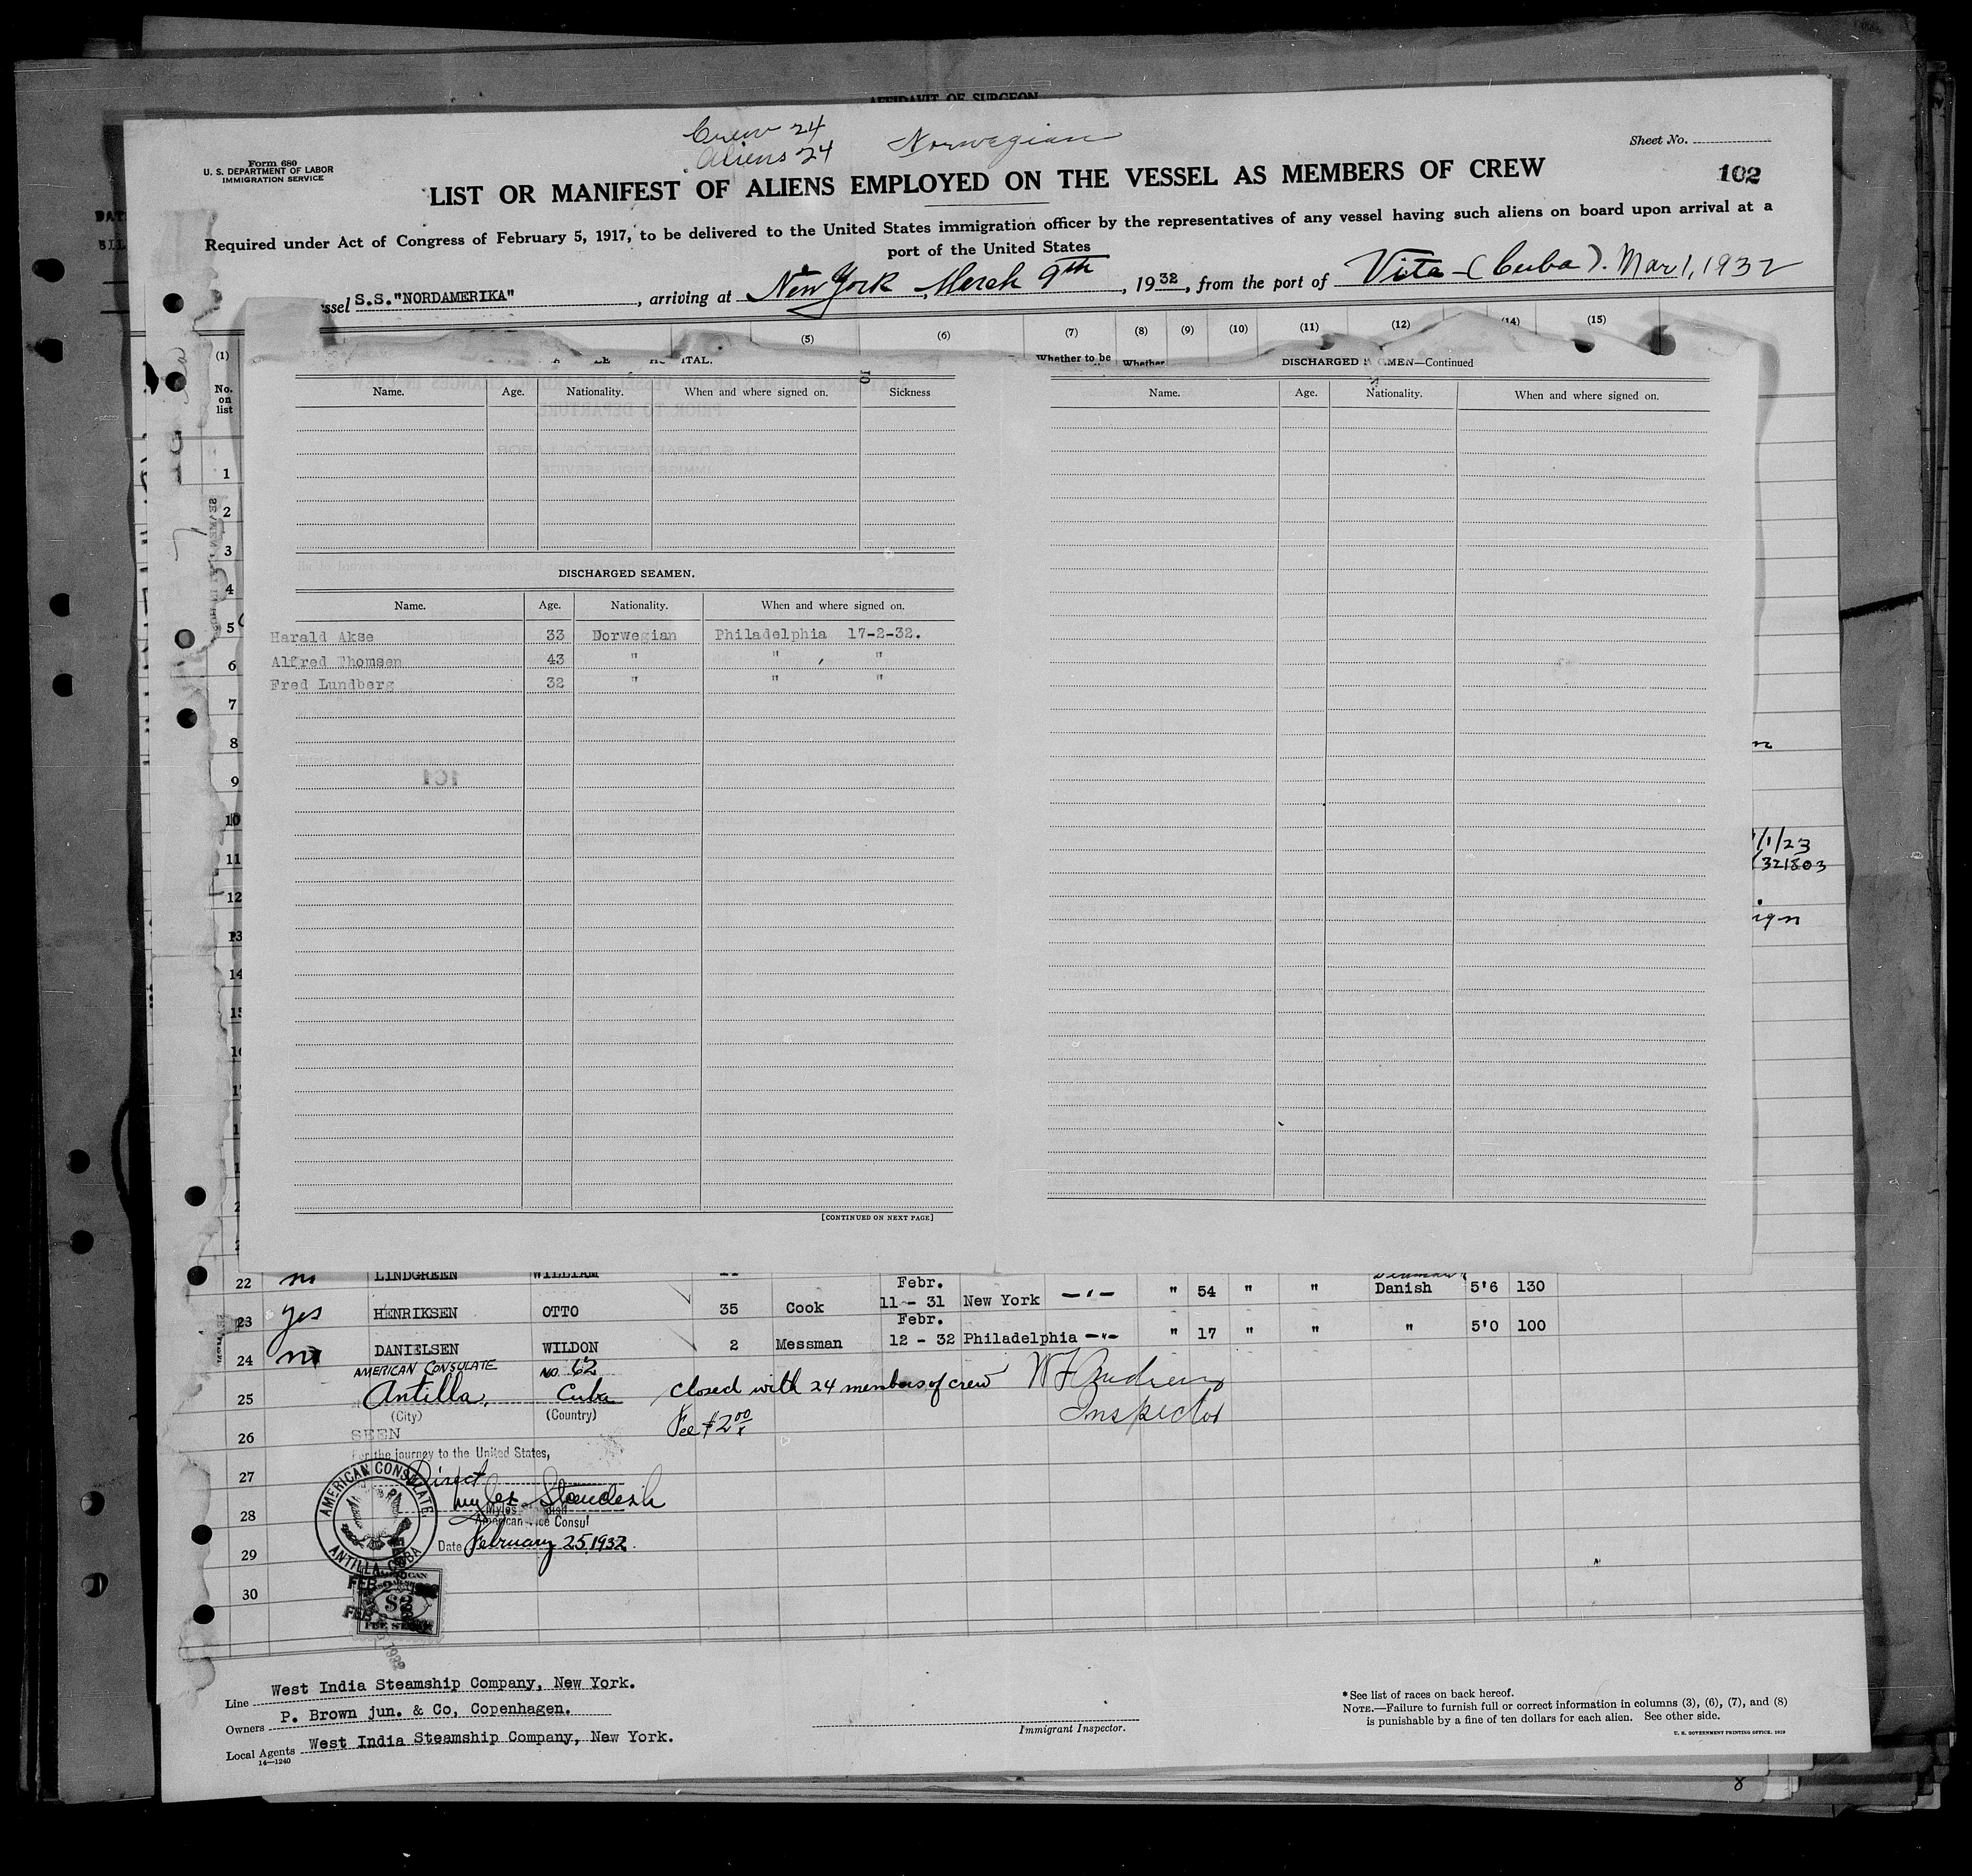 AFFIDAVIT OF SURGEON
Crew 24
Aliens 24
Norwegian
Form 680
U. S. DEPARTMENT OF LABOR
IMMIGRATION SERVICE
Sheet No.
102
LIST OR MANIFEST OF ALIENS EMPLOYED ON THE VESSEL AS MEMBERS OF CREW
Required under Act of Congress of February 5, 1917, to be delivered to the United States immigration officer by the representatives of any vessel having such aliens on board upon arrival at a
port of the United States
ssel S.S."NORDAMERIKA", arriving at New York, March 9th, 1932, from the port of Vita-(Cuba). Mar 1, 1932
(1) (5) (6) (7) (8) (9) (10) (11) (12) (14) (15)
No. on list
Whether to be Whether
ITAL.
Name. Age. Nationality. When and where signed on. Sickness
DISCHARGED SEAMEN.
Name. Age. Nationality. When and where signed on.
Harald Akse 33 Norwegian Philadelphia 17-2-32.
Alfred Thomsen 43 " " "
Fred Lundberg 32 " " "
[CONTINUED ON NEXT PAGE]
DISCHARGED S MEN—Continued
Name. Age. Nationality. When and where signed on.
1
2
3
4
5
6
7
8
9
10
11
12
13
14
/1/23
321803
ign
22 no LINDGREEN WILLIAM
23 yes HENRIKSEN OTTO 35 Cook Febr. 11 - 31 New York —"— " 54 " " Danish 5'6 130
24 no DANIELSEN WILDON 2 Messman Febr. 12 - 32 Philadelphia —"— " 17 " " " 5'0 100
25
26
27
28
29
30
AMERICAN CONSULATE NO. 62
Antilla, Cuba
(City) (Country)
closed with 24 members of crew W F Andrews
Inspector
Fee $2.00
SEEN
For the journey to the United States,
Direct
Myles Standish
Myles Standish
American Vice Consul
Date February 25, 1932.
AMERICAN CONSULATE
ANTILLA, CUBA
$2
FEE STAMP
Line West India Steamship Company, New York.
Owners P. Brown jun. & Co, Copenhagen.
Local Agents West India Steamship Company, New York.
14—1240
Immigrant Inspector.
* See list of races on back hereof.
NOTE.—Failure to furnish full or correct information in columns (3), (6), (7), and (8)
is punishable by a fine of ten dollars for each alien. See other side.
U. S. GOVERNMENT PRINTING OFFICE: 1929
8